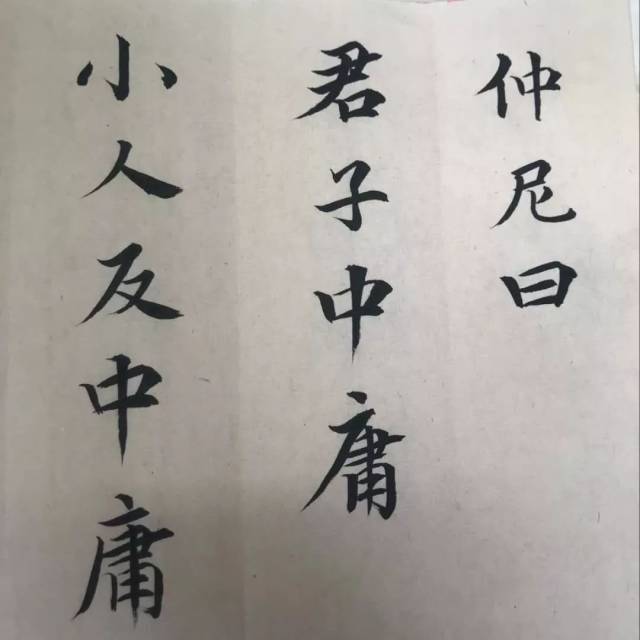 仲尼曰
君子中庸
小人反中庸